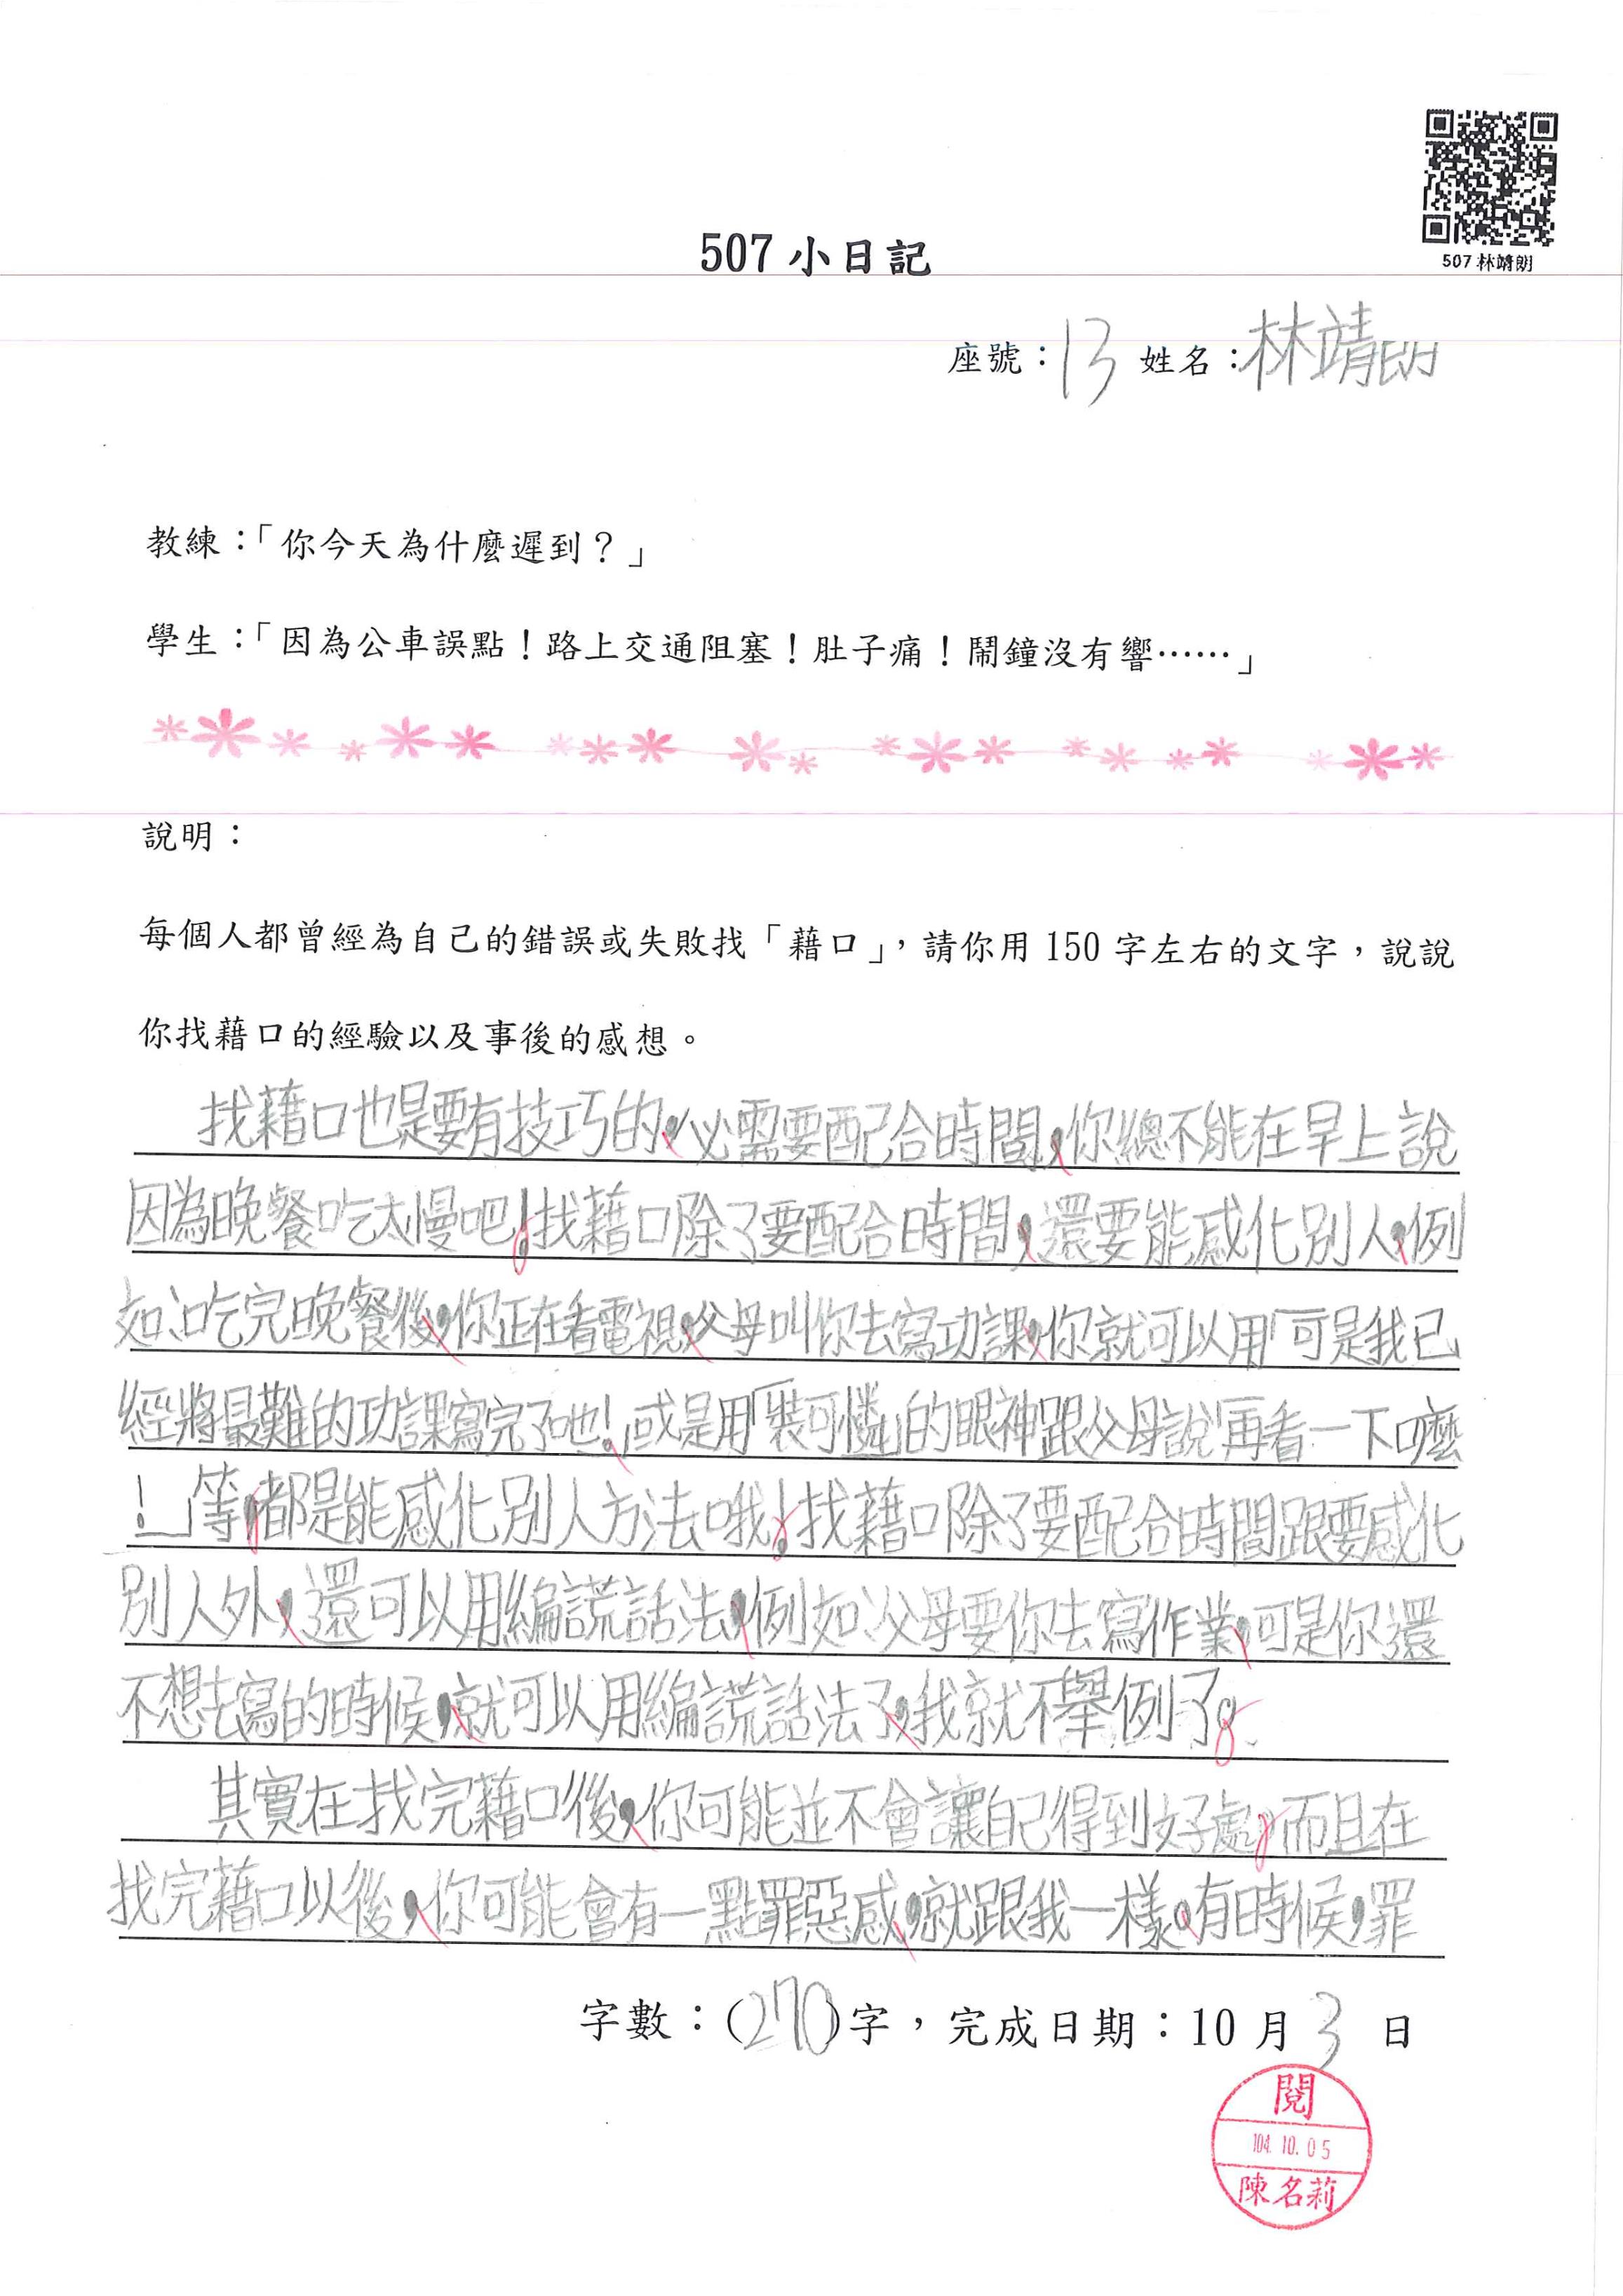 507 林靖朗
507 小日記
座號：13 姓名：林靖朗
教練：「你今天為什麼遲到？」
學生：「因為公車誤點！路上交通阻塞！肚子痛！鬧鐘沒有響……」
說明：
每個人都曾經為自己的錯誤或失敗找「藉口」，請你用 150 字左右的文字，說說
你找藉口的經驗以及事後的感想。
找藉口也是要有技巧的，必需要配合時間，你總不能在早上說
因為晚餐吃太慢吧！找藉口除了要配合時間，還要能感化別人，例
如：吃完晚餐後，你正在看電視，父母叫你去寫功課，你就可以用「可是我已
經將最難的功課寫完了吔！」或是用「裝可憐」的眼神跟父母說「再看一下嘛
！」等，都是能感化別人方法哦！找藉口除了要配合時間跟要感化
別人外，還可以用編謊話法，例如：父母要你去寫作業，可是你還
不想去寫的時候，就可以用編謊話法了，我就不舉例了。
其實在找完藉口後，你可能並不會讓自己得到好處，而且在
找完藉口以後，你可能會有一點罪惡感，就跟我一樣。有時候，罪
字數：(270)字，完成日期：10 月 3 日
閱
104.10.05
陳名莉